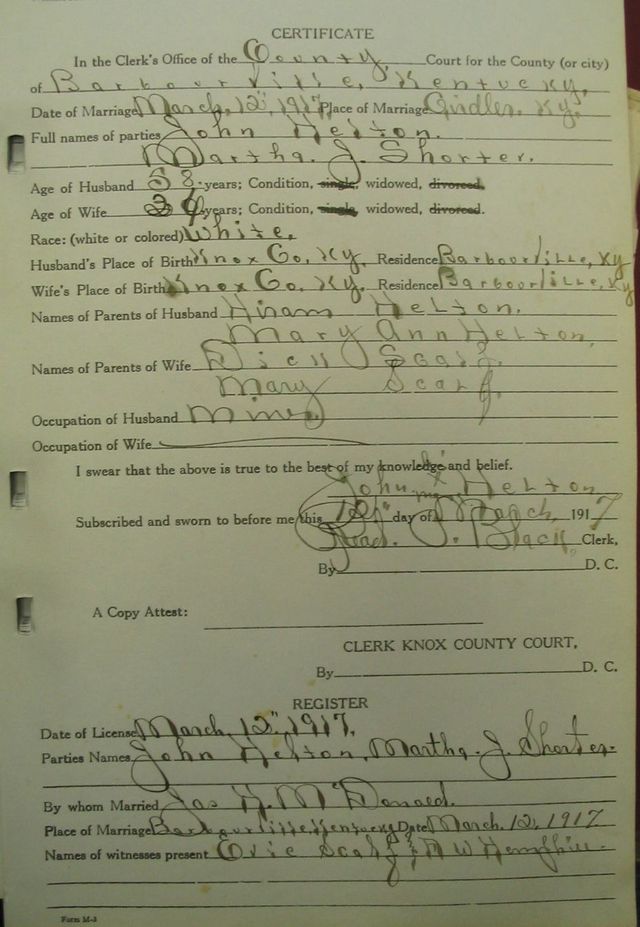 CERTIFICATE
In the Clerk's Office of the County Court for the County (or city)
of Barbourville, Kentucky,
Date of Marriage March, 12", 1917, Place of Marriage Girdler, Ky,
Full names of parties John Helton.
Martha. J. Shorter.
Age of Husband 58. years; Condition, single, widowed, divorced.
Age of Wife years; Condition, single, widowed, divorced.
Race: (white or colored) White,
Husband's Place of Birth Knox Co, Ky, Residence Barbourville, Ky
Wife's Place of Birth Knox Co, Ky, Residence Barbourville, Ky
Names of Parents of Husband Hiram Helton.
Mary Ann Helton,
Names of Parents of Wife Dick Scalf.
Mary Scalf
Occupation of Husband Miner
Occupation of Wife
I swear that the above is true to the best of my knowledge and belief.
John X Helton
Subscribed and sworn to before me this 12" day of March, 1917
Read. P. Black, Clerk,
By D. C.
A Copy Attest:
CLERK KNOX COUNTY COURT,
By D. C.
REGISTER
Date of License March, 12", 1917,
Parties Names John Helton, Martha. J. Shorter.
By whom Married Jas H. McDonald.
Place of Marriage Barbourville Kentucky Date March. 12, 1917
Names of witnesses present Ovie Scalf & W Hemphill.
Form M-3